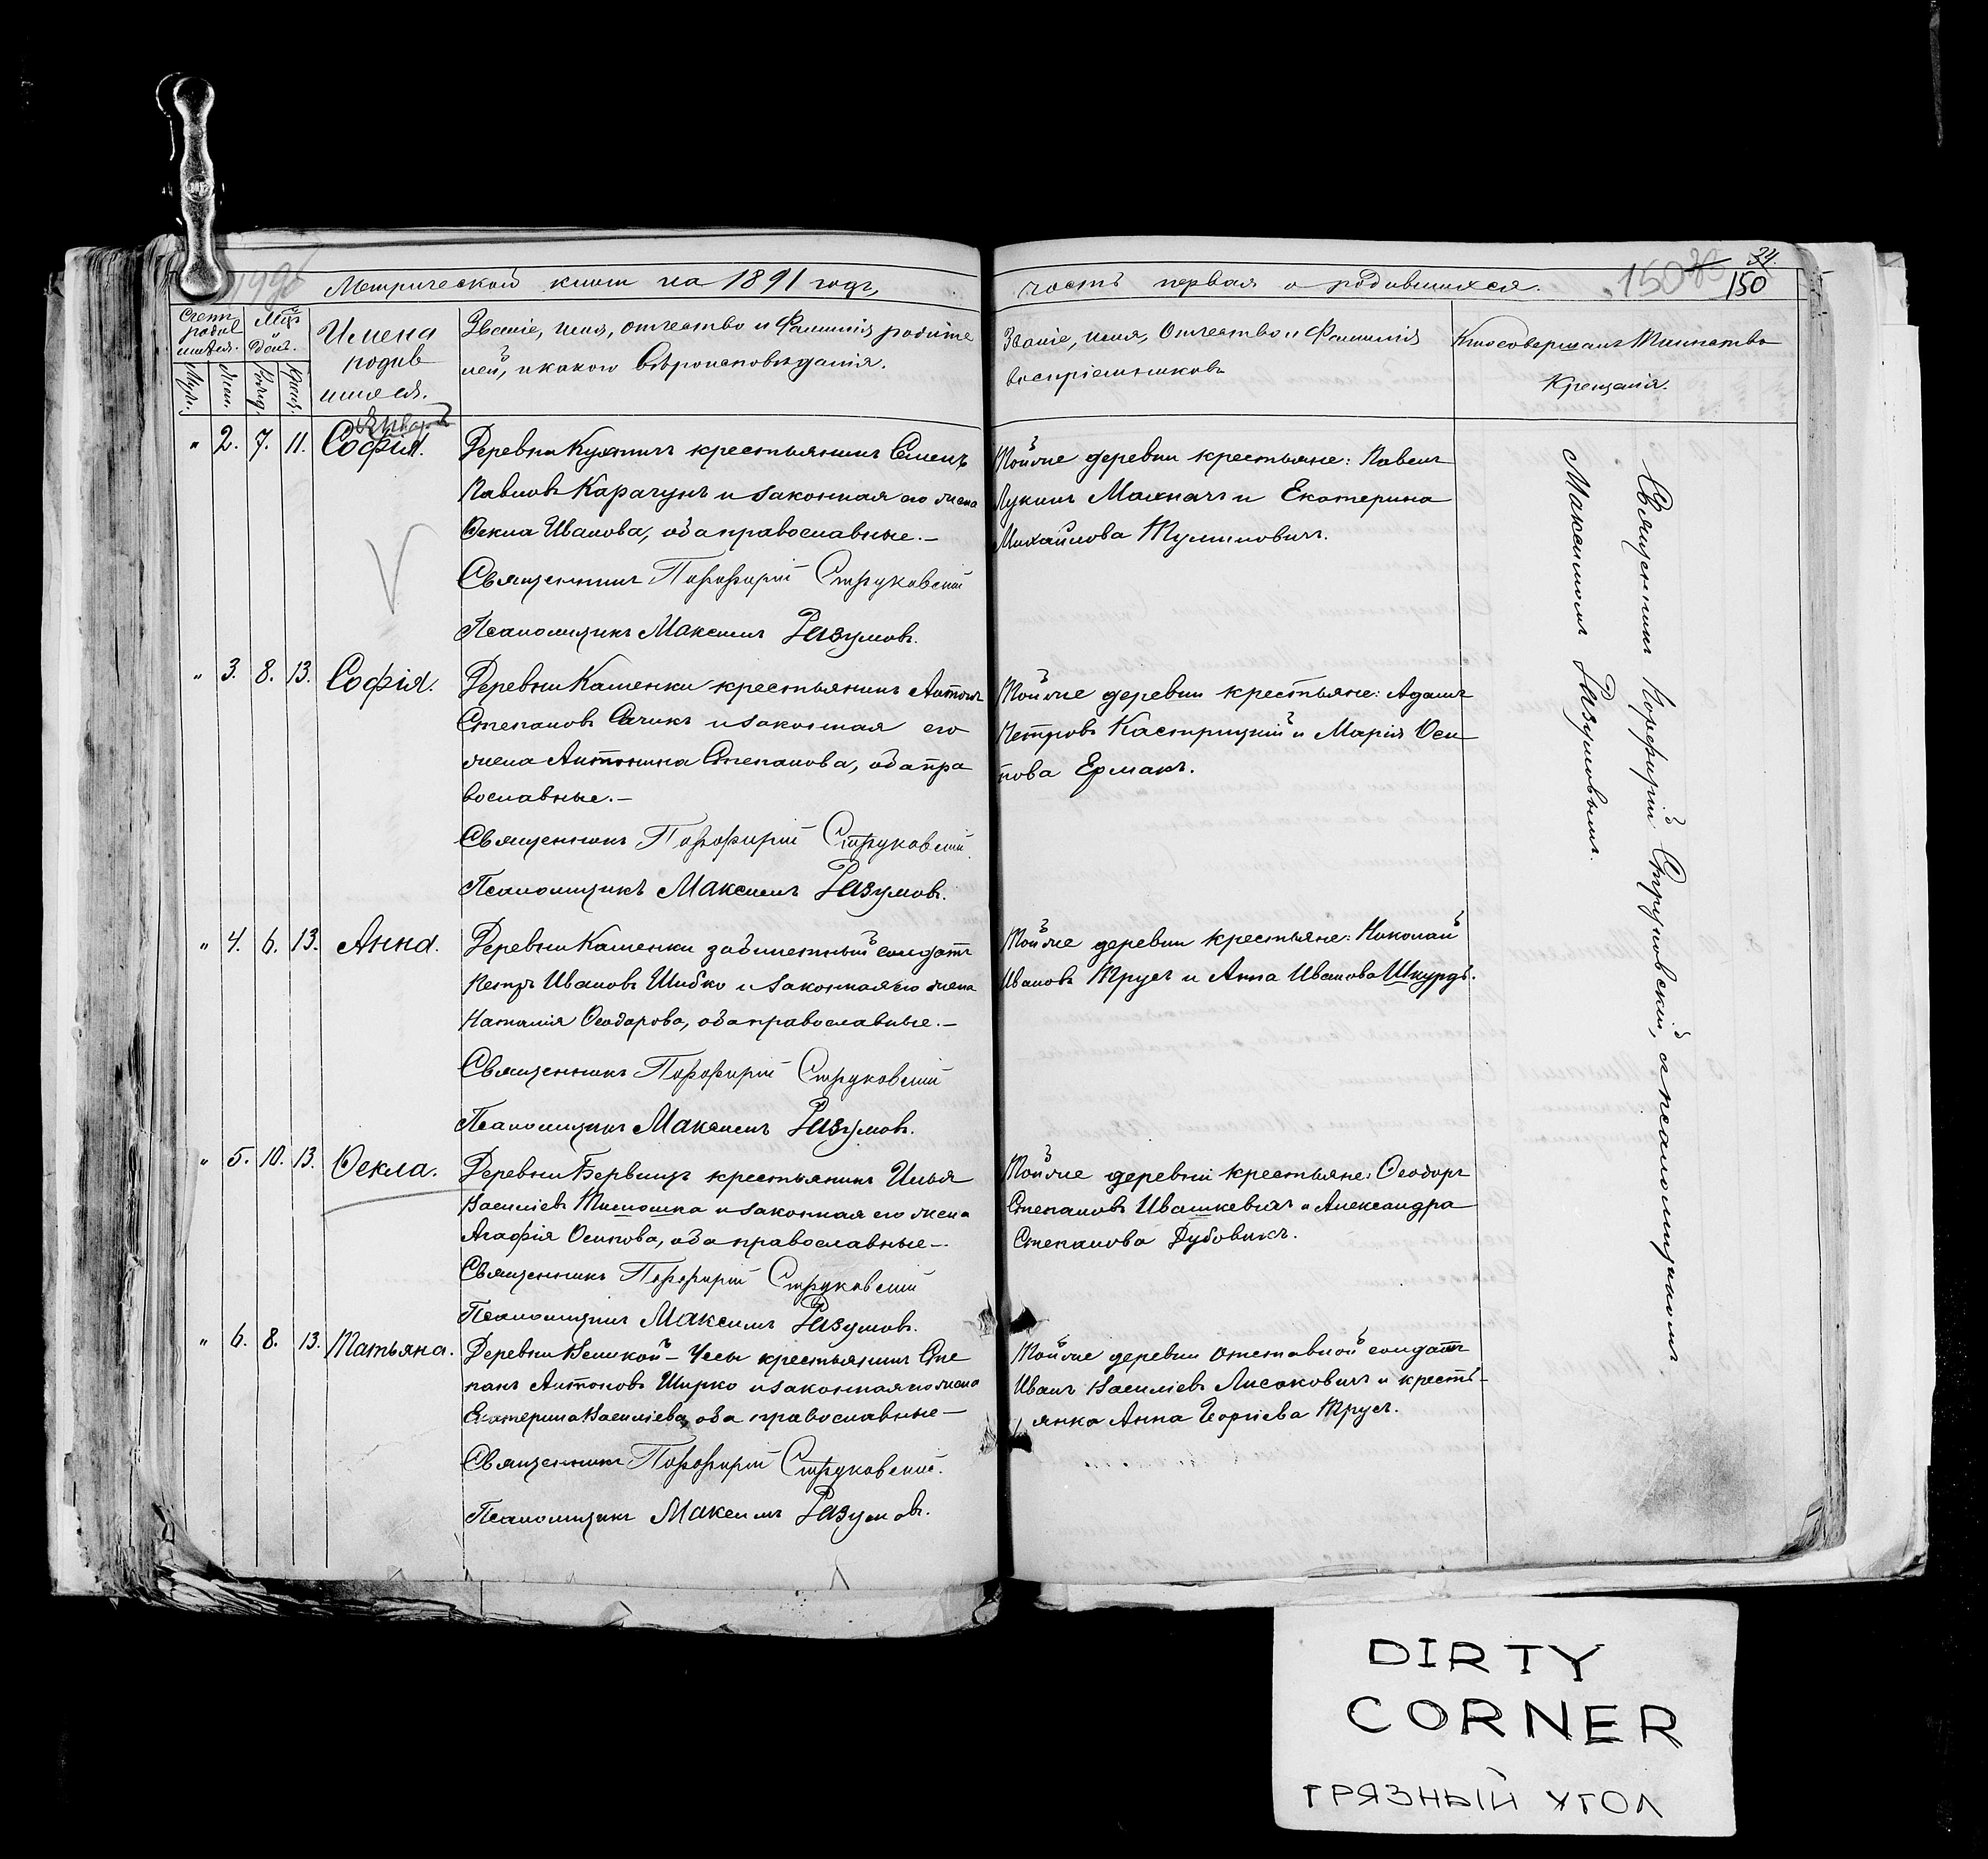 Метрической книги на 1891 годъ,
часть первая о родившихся.
150
34.
150
Счетъ родив
шихся.
Мцъ
день.
Имена
родив
шихся.
Званіе, имя, отчество и фамилія родите
лей, и какого вѣроисповѣданія.
Званіе, имя, отчество и фамилія
воспріемниковъ
Кто совершалъ таинство
Крещенія.
Муж. Жен. Рожд. Крещ.
Январь
" 2. 7. 11. Софія.
Деревни Кухтичъ крестьянинъ Семенъ
Павловъ Карачунъ и законная его жена
Ѳекла Иванова, оба православные.—
Священникъ Порфирій Струковскій
Псаломщикъ Максимъ Разумовъ.
Той же деревни крестьяне: Павелъ
Лукинъ Махначъ и Екатерина
Михайлова Тумиловичъ.
" 3. 8. 13. Софія.
Деревни Каменки крестьянинъ Антонъ
Степановъ Сачикъ и законная его
жена Антонина Степанова, оба пра
вославные.—
Священникъ Порфирій Струковскій
Псаломщикъ Максимъ Разумовъ.
Той же деревни крестьяне: Адамъ
Петровъ Кастрицкій и Марія Оси
пова Ермакъ.
" 4. 6. 13. Анна.
Деревни Каменки забилетный солдатъ
Петръ Ивановъ Шибко и законная его жена
Наталія Ѳеодорова, оба православные.—
Священникъ Порфирій Струковскій
Псаломщикъ Максимъ Разумовъ.
Той же деревни крестьяне: Николай
Ивановъ Трусъ и Анна Иванова Шкурдь.
" 5. 10. 13. Ѳекла.
Деревни Бервищъ крестьянинъ Илья
Василіевъ Тимошка и законная его жена
Агафія Осипова, оба православные—.
Священникъ Порфирій Струковскій
Псаломщикъ Максимъ Разумовъ.
Той же деревни крестьяне: Ѳеодоръ
Степановъ Ивашкевичъ и Александра
Степанова Дубовикъ.
" 6. 8. 13. Татьяна.
Деревни Великой-Усы крестьянинъ Сте
панъ Антоновъ Ширко и законная его жена
Екатерина Василіева, оба православные—
Священникъ Порфирій Струковскій.
Псаломщикъ Максимъ Разумовъ.
Той же деревни отставной солдатъ
Иванъ Василіевъ Лисаковичъ и кресть-
янка Анна Георгіева Трусъ.
Священникъ Порфирій Струковскій, съ псаломщикомъ
Максимомъ Разумовымъ.
DIRTY
CORNER
ГРЯЗНЫЙ УГОЛ